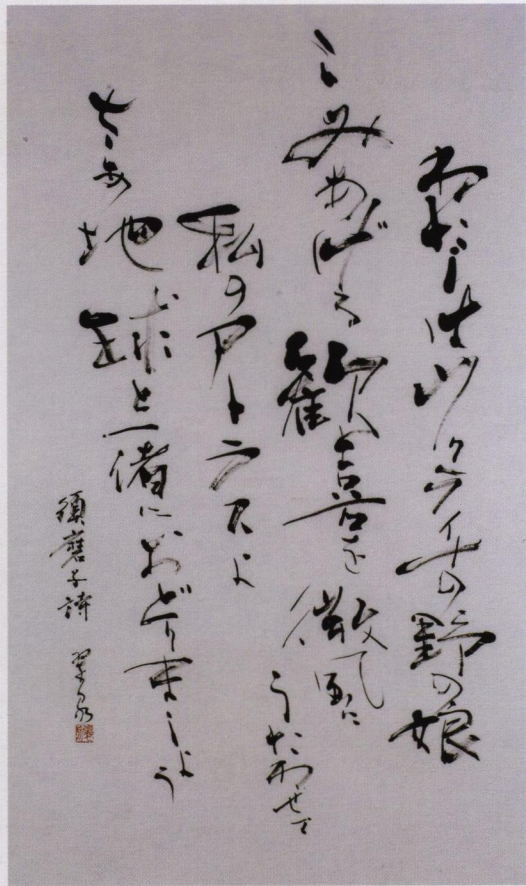 わたしはウクライナの野の娘
こみあげる歡喜を微風に
うたわせて
私のアトラスよ
さあ地球と一緒におどりましょう
須磨子詩